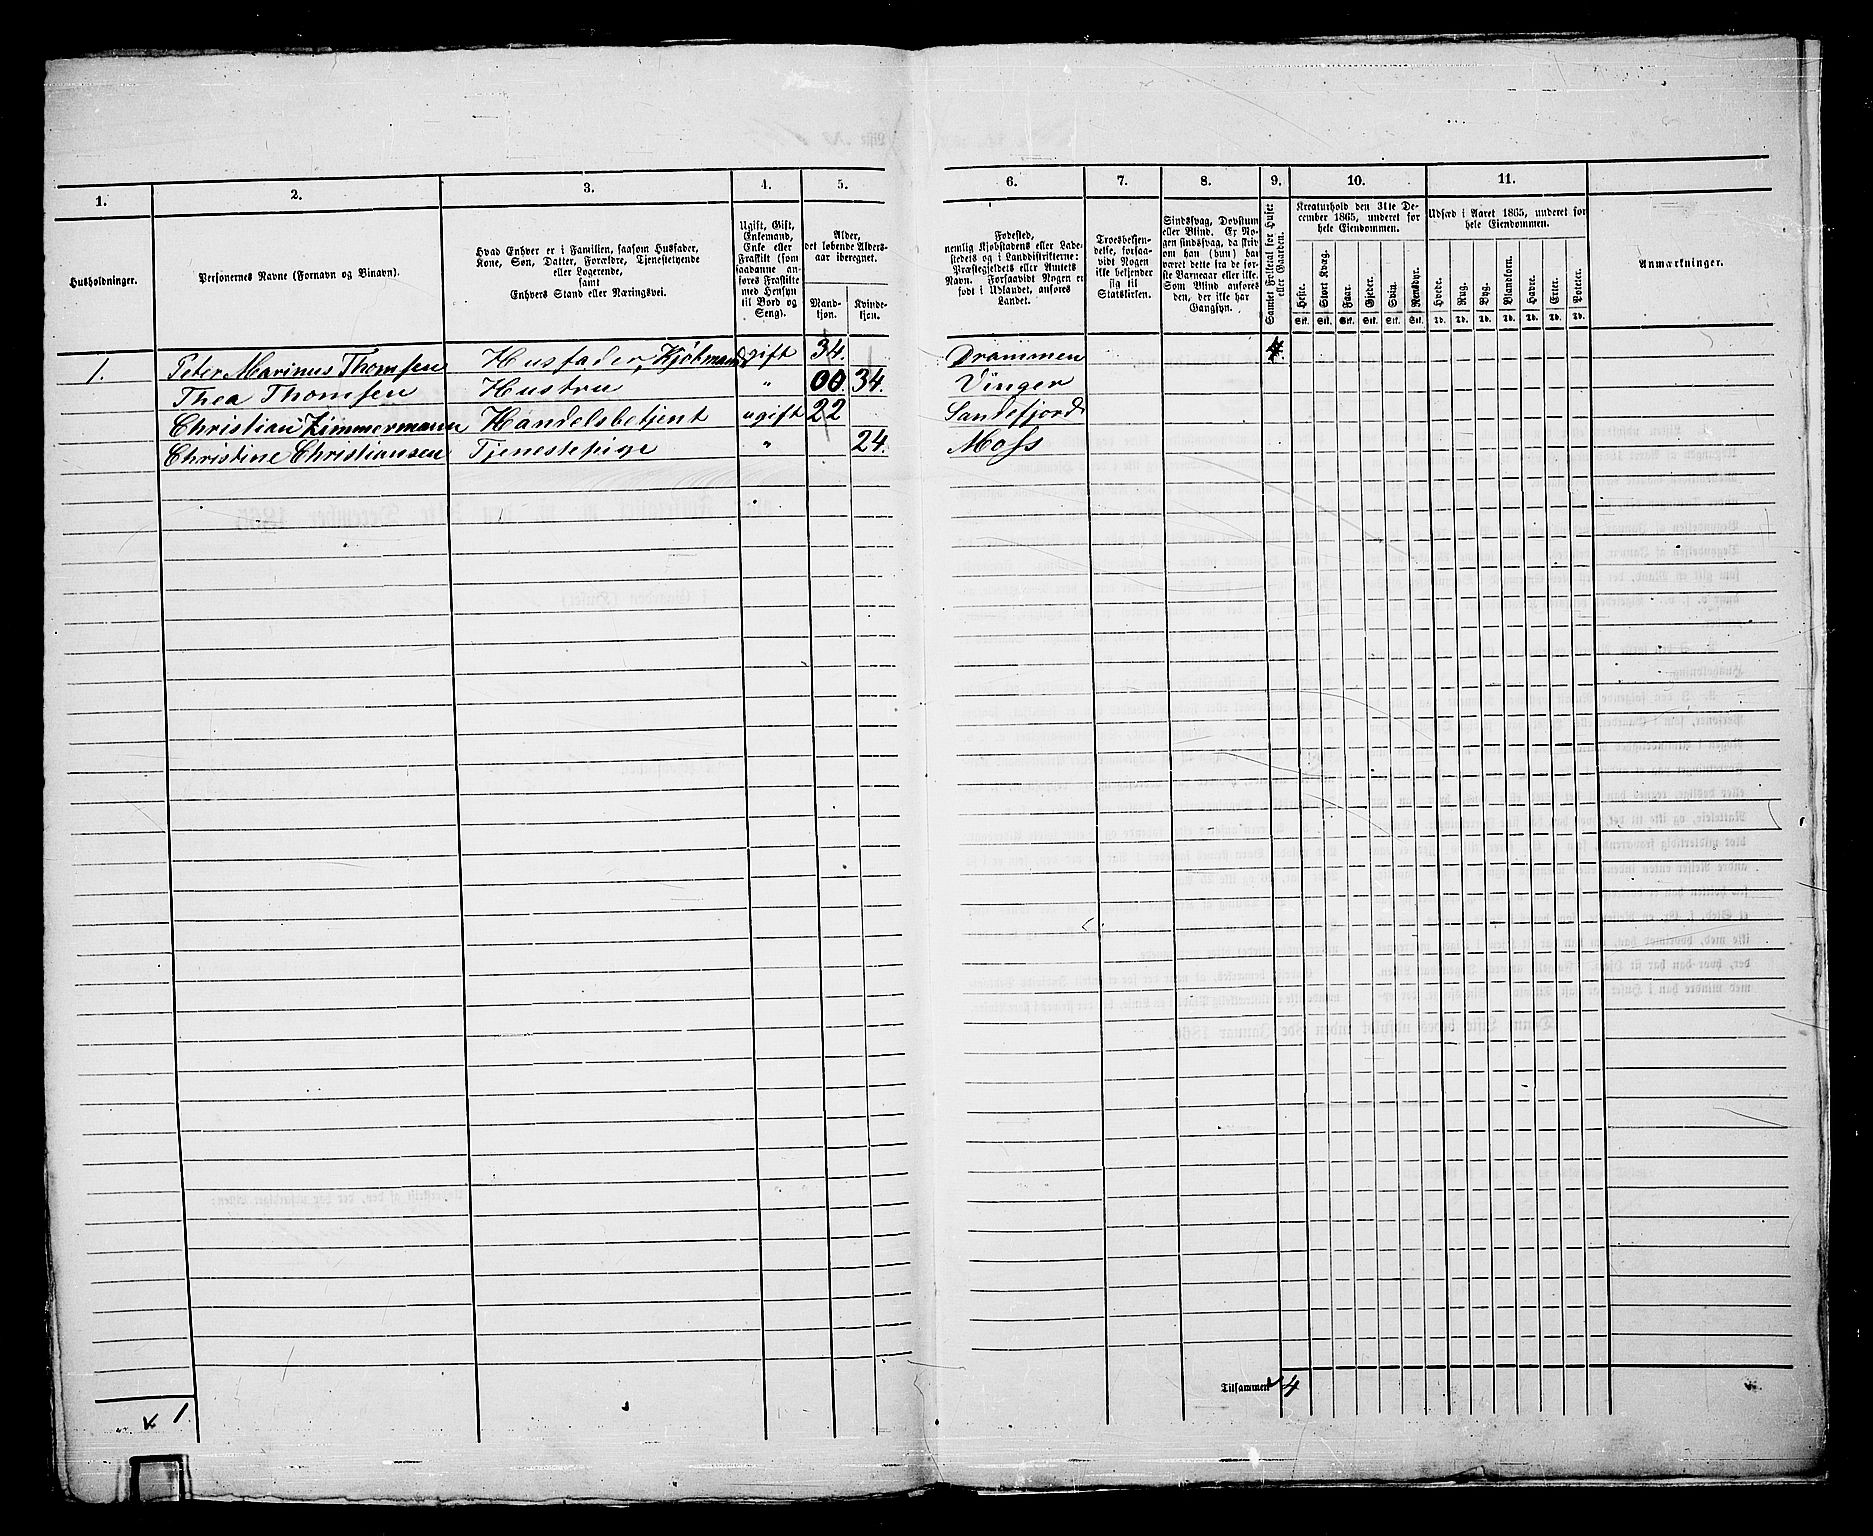 1. 2. 3. 4. 5. 6. 7. 8. 9. 10. 11.
Husholdninger.
Personernes Navne (Fornavn og Binavn).
Hvad Enhver er i Familien, saasom Husfader,
Kone, Søn, Datter, Forældre, Tjenestetyende
eller Logerende,
samt
Enhvers Stand eller Næringsvei.
Ugift, Gift,
Enkemand,
Enke eller
Fraskilt (som
saadanne an-
føres Fraskilte
med Hensyn
til Bord og
Seng).
Alder,
det løbende Alders-
aar iberegnet.
Mand-
kjøn.
Kvinde-
kjøn.
Fødested,
nemlig Kjøbstadens eller Lade-
stedets og i Landdistrikterne:
Præstegjeldets eller Amtets
Navn. Forsaavidt Nogen er
født i Udlandet, anføres
Landet.
Troesbekjen-
delse, forsaa-
vidt Nogen
ikke bekjender
sig til
Statskirken.
Sindssvag, Døvstum
eller Blind. Er No-
gen sindssvag, da skriv
om han (hun) har
været dette fra de før-
ste Barneaar eller ikke.
Som Blind anføres
den, der ikke har
Gangsyn.
Samlet Folketal for Huset
eller Gaarden.
Kreaturhold den 31te De-
cember 1865, underet for
hele Eiendommen.
Heste. Stort Kvæg. Faar. Gjeder. Svin. Rensdyr.
Stk. Stk. Stk. Stk. Stk. Stk.
Udsæd i Aaret 1865, underet for
hele Eiendommen.
Hvede. Rug. Byg. Blandkorn. Havre. Erter. Poteter.
Td. Td. Td. Td. Td. Td. Td.
Anmærkninger.
1. Peter Marinus Thomsen Husfader, Kjöbmand gift 34. Drammen 4
Thea Thomsen Hustru " 00. 34. Vinger
Christian Zimmermann Handelsbetjent ugift 22 Sandefjord
Christine Christiansen Tjenestepige " 24. Moss
Tilsammen 4
1.